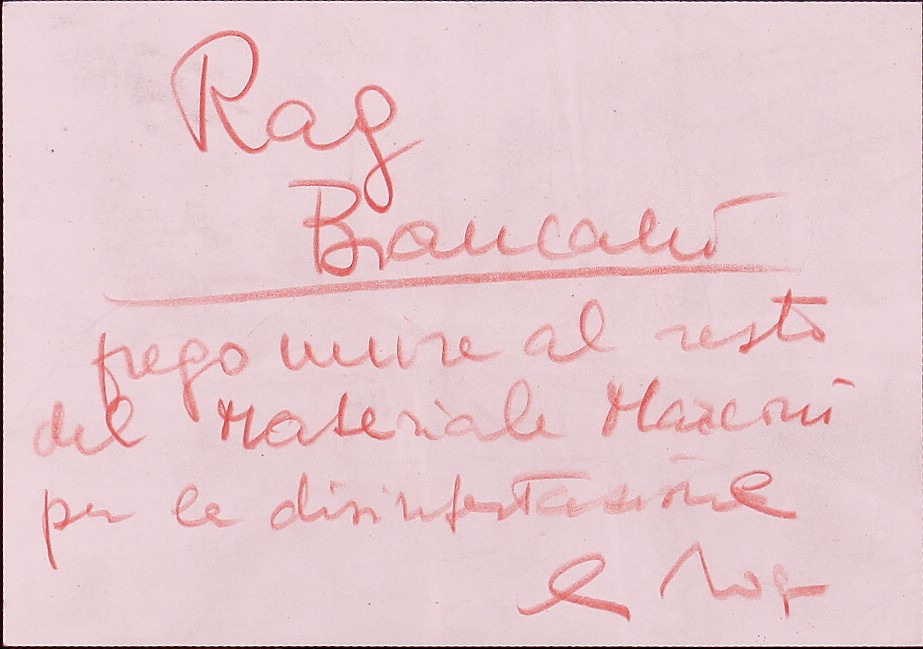 Rag
Brancaleoni
prego unire al resto
del Materiale Marconi
per la disinfestazione